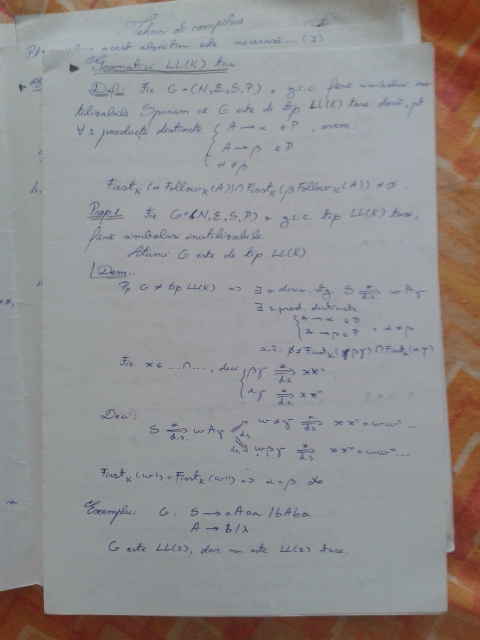 Tehnici de compilare
acest algoritm este necesară ... (I)
Gramatici LL(K) tari
Def: Fie G=(N,Σ,S,P) o g.i.c. fără simboluri inu-
tilizabile. Spunem că G este de tip LL(K) tare dacă, pt
∀ 2 producţii distincte { A → α ∈ P , avem:
A → β ∈ P
α ≠ β
First_K(α Follow_K(A)) ∩ First_K(β Follow_K(A)) ≠ ∅.
Prop1 Fie G=(N,Σ,S,P) o g.i.c. tip LL(K) tare,
fără simboluri inutilizabile.
Atunci G este de tip LL(K)
Dem:
Pp G ≠ tip LL(K) => ∃ o deriv. stg. S *⇒ds wAγ
∃ 2 prod. distincte
{ A → α ∈ P
A → β ∈ P , α ≠ β
a.î. ∅ ≠ First_K(βγ) ∩ First_K(αγ)
Fie x ∈ ... ∩ ..., deci { βγ *⇒ds xx'
αγ *⇒ds xx''
Deci:
S *⇒ds wAγ ⇒ds wαγ *⇒ds xx' = ww' ...
⇒ds wβγ *⇒ds xx'' = ww'' ...
First_K(w') = First_K(w'') => α = β
Exemplu: G: S → aAaa / bAba
A → b/λ
G este LL(2), dar nu este LL(2) tare.